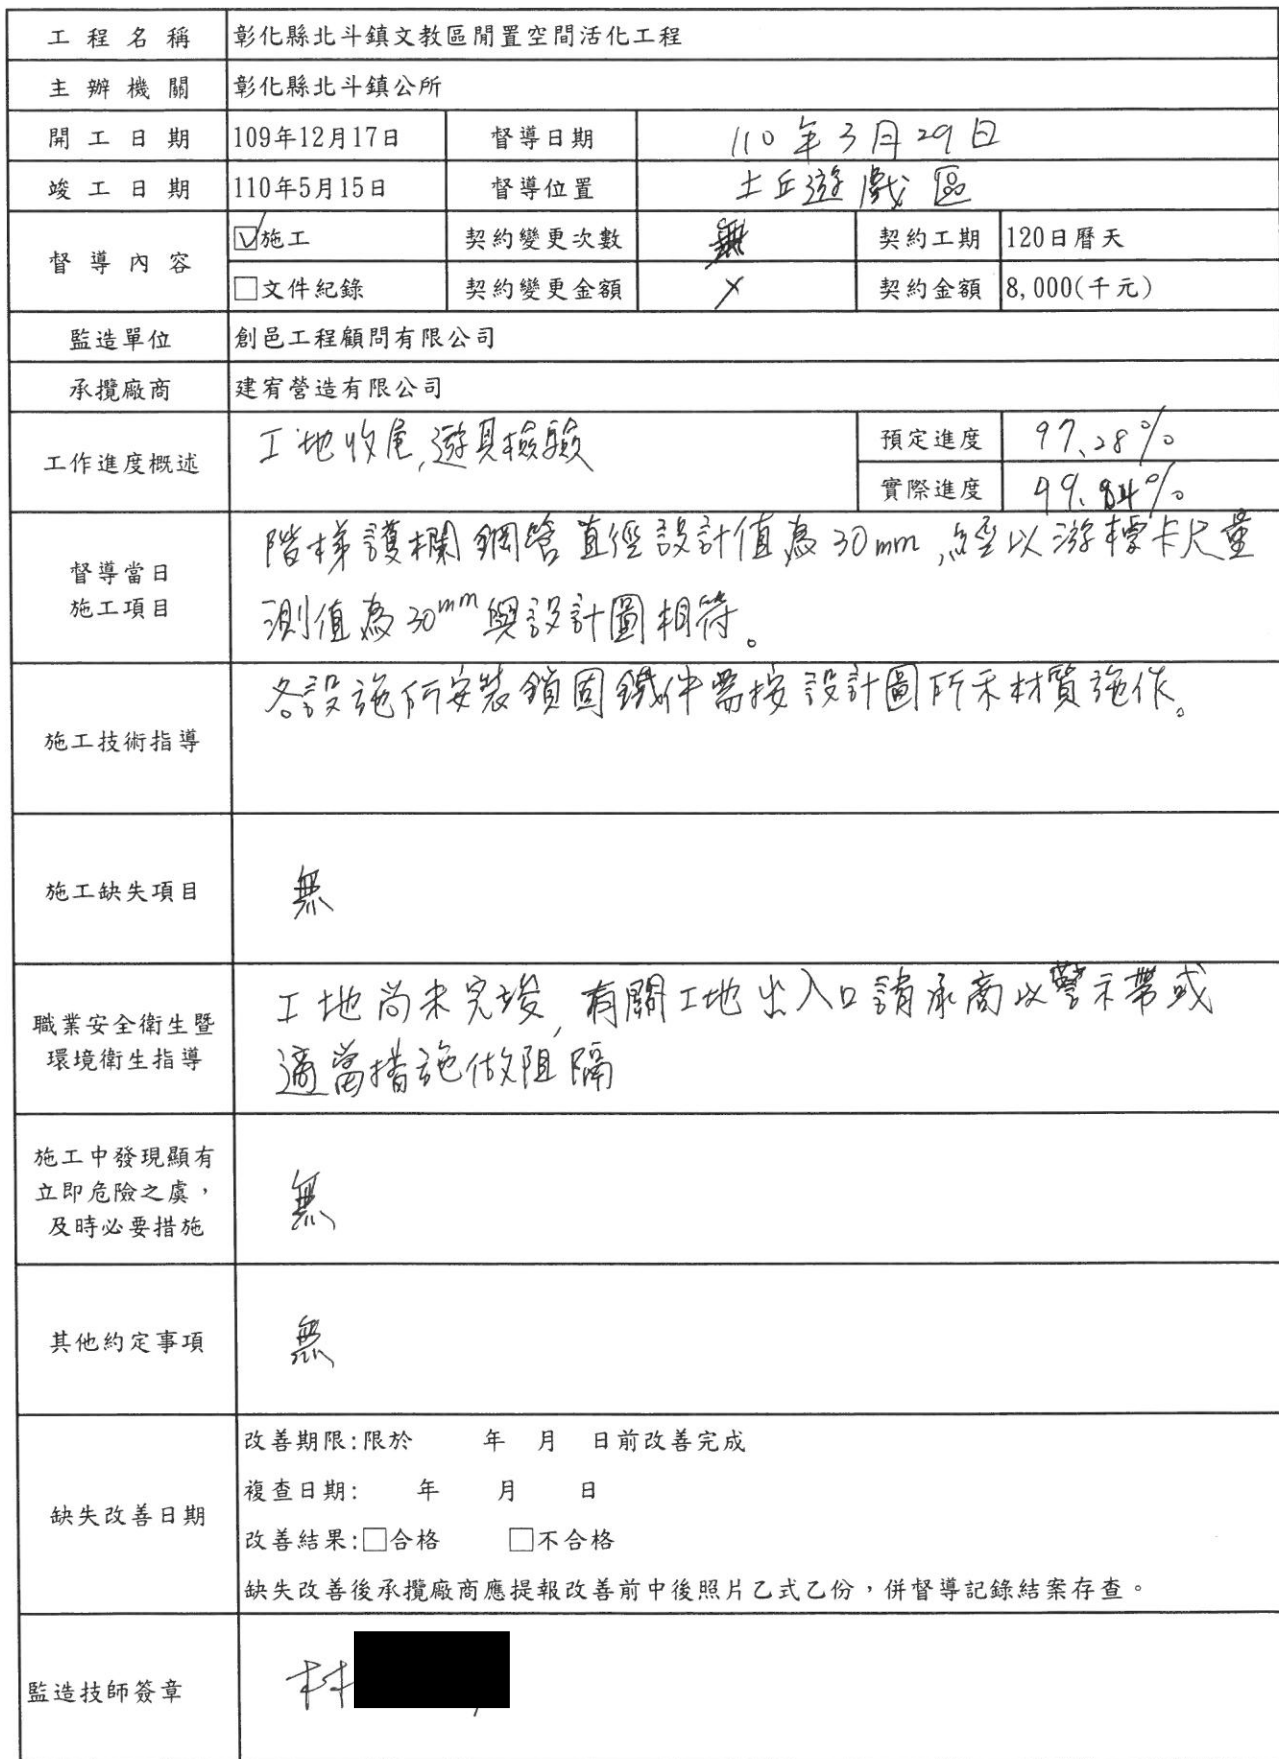 工程名稱 彰化縣北斗鎮文教區閒置空間活化工程
主辦機關 彰化縣北斗鎮公所
開工日期 109年12月17日 督導日期 110年3月29日
竣工日期 110年5月15日 督導位置 土丘遊戲區
督導內容 ☑施工 契約變更次數 無 契約工期 120日曆天
□文件紀錄 契約變更金額 X 契約金額 8,000(千元)
監造單位 創邑工程顧問有限公司
承攬廠商 建宥營造有限公司
工作進度概述 工地收尾,遊具檢驗 預定進度 97.28%
實際進度 99.84%
督導當日
施工項目
階梯護欄鋼管直徑設計值為30mm,經以游標卡尺量
測值為30mm與設計圖相符。
施工技術指導 各設施所安裝鎖固鐵件需按設計圖所示材質施作。
施工缺失項目 無
職業安全衛生暨
環境衛生指導
工地尚未完竣,有關工地出入口請承商以警示帶或
適當措施做阻隔
施工中發現顯有
立即危險之虞,
及時必要措施
無
其他約定事項 無
缺失改善日期
改善期限:限於 年 月 日前改善完成
複查日期: 年 月 日
改善結果:□合格 □不合格
缺失改善後承攬廠商應提報改善前中後照片乙式乙份,併督導記錄結案存查。
監造技師簽章 林